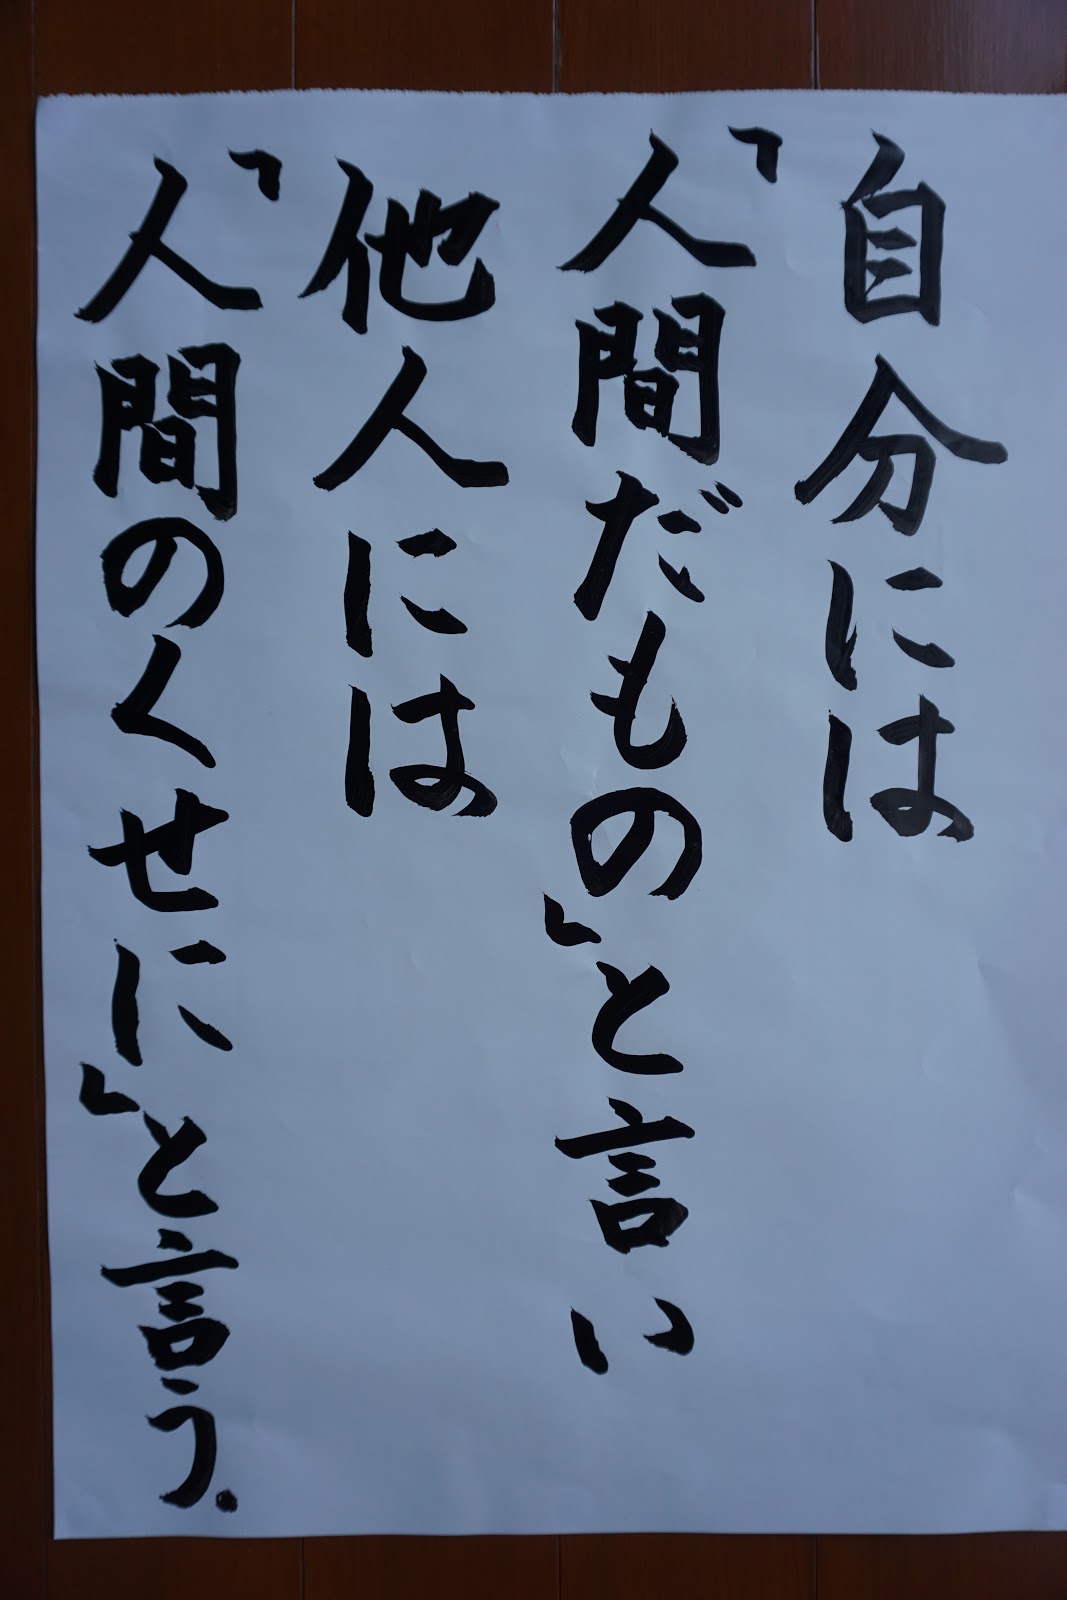 自分には
「人間だもの」と言い
他人には
「人間のくせに」と言う.